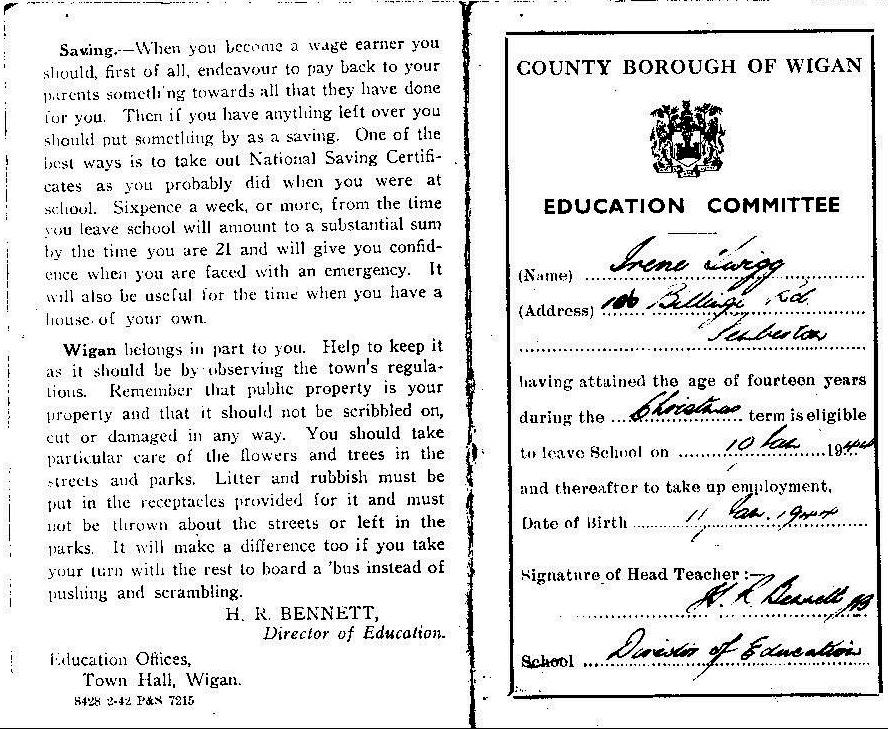 Saving.—When you become a wage earner you
should, first of all, endeavour to pay back to your
parents something towards all that they have done
for you. Then if you have anything left over you
should put something by as a saving. One of the
best ways is to take out National Saving Certifi-
cates as you probably did when you were at
school. Sixpence a week, or more, from the time
you leave school will amount to a substantial sum
by the time you are 21 and will give you confid-
ence when you are faced with an emergency. It
will also be useful for the time when you have a
house of your own.
Wigan belongs in part to you. Help to keep it
as it should be by observing the town's regula-
tions. Remember that public property is your
property and that it should not be scribbled on,
cut or damaged in any way. You should take
particular care of the flowers and trees in the
streets and parks. Litter and rubbish must be
put in the receptacles provided for it and must
not be thrown about the streets or left in the
parks. It will make a difference too if you take
your turn with the rest to board a 'bus instead of
pushing and scrambling.
H. R. BENNETT,
Director of Education.
Education Offices,
Town Hall, Wigan.
8428 2-42 P&S 7215
COUNTY BOROUGH OF WIGAN
EDUCATION COMMITTEE
(Name) Irene Twigg
(Address) Billinge Rd.
Pemberton
having attained the age of fourteen years
during the Christmas term is eligible
to leave School on 10 Jan 1944
and thereafter to take up employment.
Date of Birth 11 Jan. 1944
Signature of Head Teacher :—
H. R. Bennett
School Director of Education